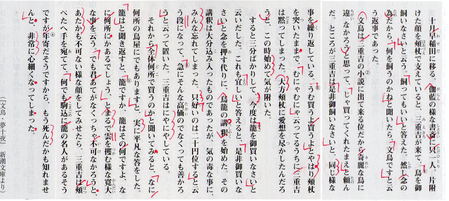 十月早稲田に移る。伽藍の様な書斎に只一人、片附
けた顔を頬杖で支えていると、三重吉が来て、鳥を御
飼いなさいと云う。飼ってもいいと答えた。然し念の
為だから、何を飼うのかねと聞いたら、文鳥ですと云
う返事であった。
文鳥は三重吉の小説に出て来る位だから奇麗な鳥に
違なかろうと思って、じゃ買ってくれたまえと頼ん
だ。ところが三重吉は是非御飼いなさいと、同じ様な
事を繰り返している。うむ買うよ買うよとやはり頬杖
を突いたままで、むにゃむにゃ云ってるうちに三重吉
は黙ってしまった。大方頬杖に愛想を尽かしたんだろ
うと、この時始めて気が附いた。
すると三分ばかりして、今度は籠を御買いなさいと
云いだした。これも宜しいと答えると、是非御買いな
さいと念を押す代りに、鳥籠の講釈を始めた。その
講釈は大分込み入ったものであったが、気の毒な事に、
みんな忘れてしまった。只好いのは二十円位すると云
う段になって、急にそんな高価のでなくっても善かろ
うと云っておいた。三重吉はにやにやしている。
それから全体何所で買うのかと聞いてみると、なに
何所の鳥屋にでもありますと、実に平凡な答をした。
籠はと聞き返すと、籠ですか、籠はその何ですよ、な
に何所にかあるでしょう、とまるで雲を攫む様な寛大
な事を云う。でも君あてがなくっちゃ不可なかろうと、
あたかも不可ない様な顔をしてみせたら、三重吉は頬
ぺたへ手をあてて、何でも駒込に籠の名人があるそう
ですが、年寄だそうですから、もう死んだかも知れませ
んと、非常に心細くなってしまった。
（「文鳥・夢十夜」 新潮文庫より）